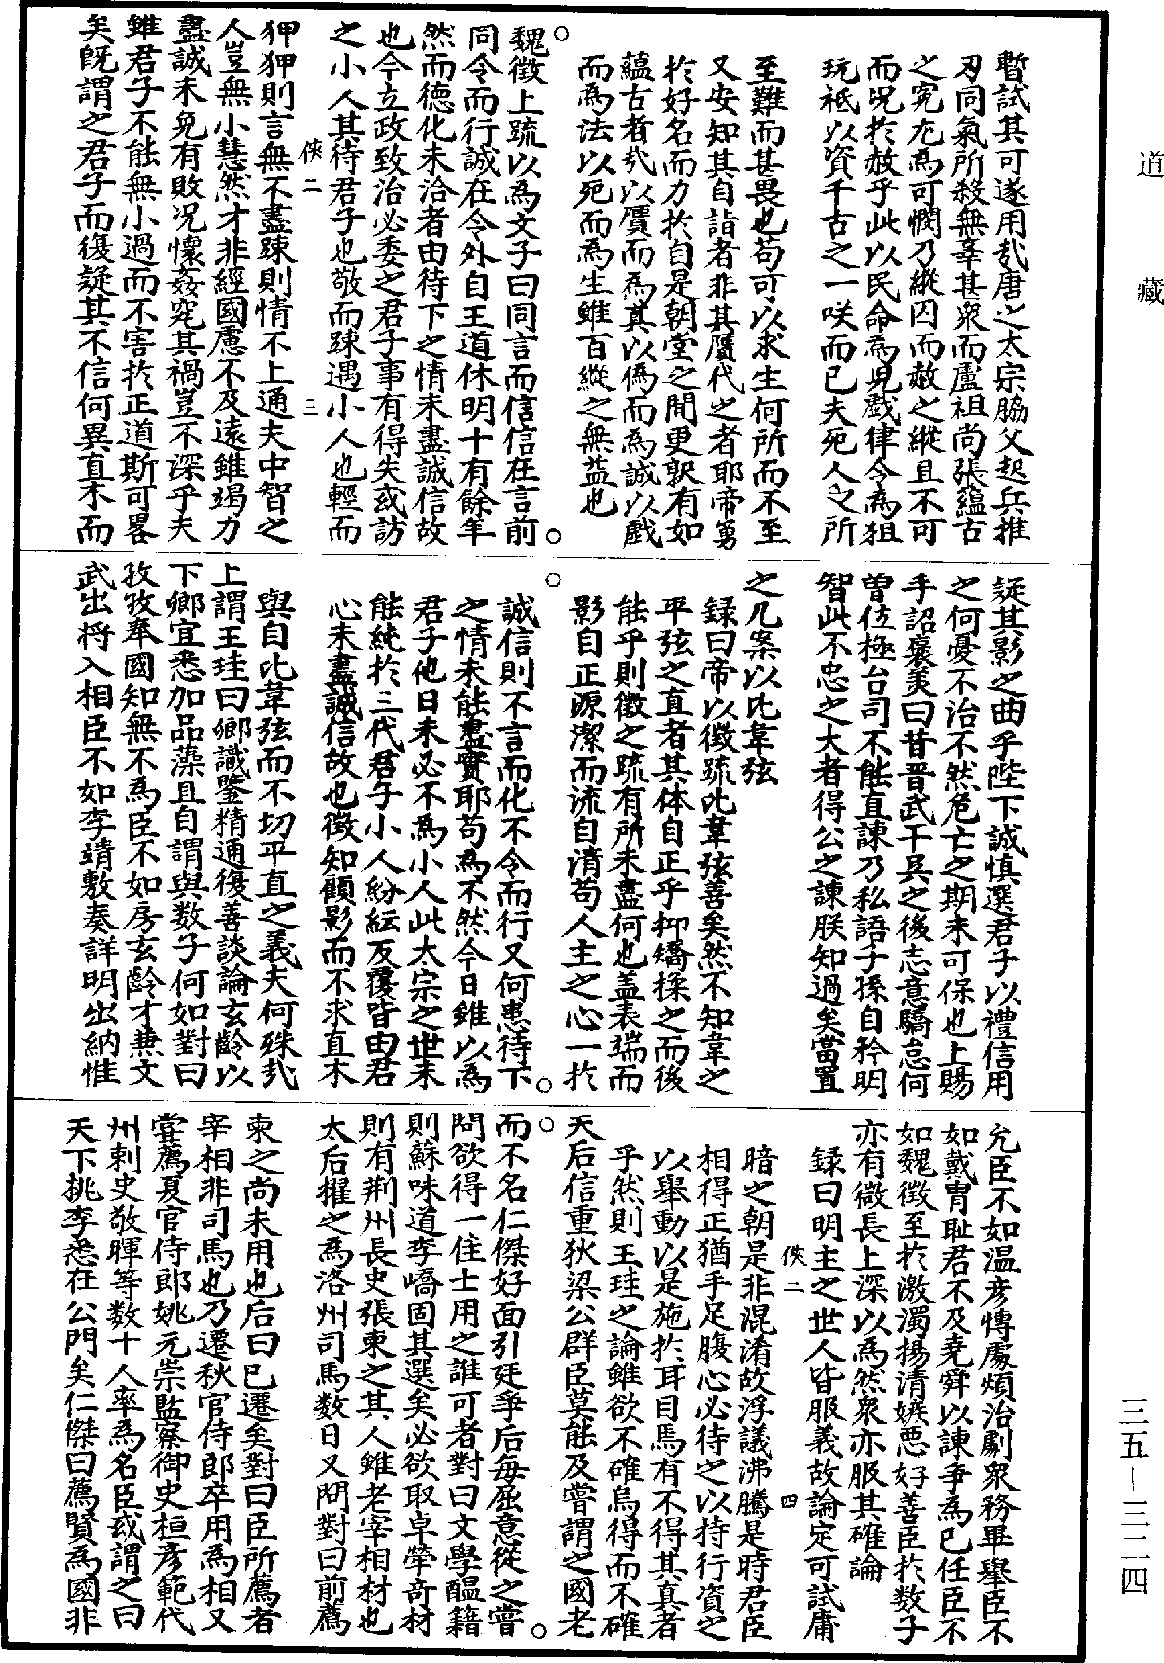 道藏
暫試其可遂用㢤唐之太宗脇父起兵推
刃同氣所殺無辜甚衆而盧祖尚張蘊古
之寃尤為可憫乃縱囚而赦之縱且不可
而况於赦乎此以民命為兒戲律令為狙
玩袛以資千古之一咲而已夫死人之所
至難而甚畏也苟可以求生何所而不至
又安知其自詣者非其贗代之者耶帝勇
於好名而力於自是朝堂之間更㪅有如
蘊古者㢤以贋而為真以偽而為誠以戲
而為法以死而為生雖百縱之無益也
○
魏徵上疏以為文子曰同言而信信在言前
同令而行誠在令外自王道休明十有餘年
然而德化未洽者由待下之情未盡誠信故
也今立政致治必委之君子事有得失或訪
之小人其待君子也敬而踈遇小人也輕而
佚二 三
狎狎則言無不盡踈則情不上通夫中智之
人豈無小慧然才非經國慮不及遠雖竭力
盡誠未免有敗况懷姦宄其禍豈不深乎夫
雖君子不能無小過而不害於正道斯可畧
矣既謂之君子而復疑其不信何異直木而
疑其影之曲乎陛下誠慎選君子以禮信用
之何憂不治不然危亡之期未可保也上賜
手詔褒美曰昔晉武平吳之後志意驕怠何
曽位極台司不能直諫乃私語子孫自矜明
智此不忠之大者得公之諫朕知過矣當置
之几案以比韋弦
録曰帝以徵疏比韋弦善矣然不知韋之
平弦之直者其体自正乎抑矯揉之而後
能乎則徵之疏有所未盡何也盖表端而
影自正源潔而流自清苟人主之心一於
○
誠信則不言而化不令而行又何患待下
之情未能盡實耶苟為不然今日雖以為
君子他日未必不為小人此太宗之世未
能純於三代君子小人紛紜反覆皆由君
心未盡誠信故也徵知顧影而不求直木
與自比韋弦而不切平直之義夫何殊㢤
上謂王珪曰卿識鑒精通復善談論玄齡以
下卿宜悉加品藻且自謂與数子何如對曰
孜孜奉國知無不為臣不如房玄齡才兼文
武出将入相臣不如李靖敷奏詳明出納惟
允臣不如温彦博處煩治劇衆務畢舉臣不
如戴胄耻君不及堯舜以諫爭為已任臣不
如魏徵至於激濁揚清嫉惡好善臣於数子
亦有微長上深以為然衆亦服其確論
録曰明主之世人皆服義故論定可試庸
佚二 四
暗之朝是非混淆故浮議沸騰是時君臣
相得正猶手足腹心必待之以持行資之
以舉動以是施於耳目焉有不得其真者
乎然則王珪之論雖欲不確烏得而不確
天后信重狄梁公群臣莫能及嘗謂之國老
○
而不名仁傑好面引廷爭后每屈意從之嘗
問欲得一佳士用之誰可者對曰文學醖籍
則蘇味道李嶠固其選矣必欲取卓犖奇材
則有荆州長史張柬之其人雖老宰相材也
太后擢之為洛州司馬数日又問對曰前薦
柬之尚未用也后曰已遷矣對曰臣所薦者
宰相非司馬也乃遷秋官侍郎卒用為相又
嘗薦夏官侍郎姚元崇監察御史桓彦範代
州刺史敬暉等数十人率為名臣或謂之曰
天下挑李悉在公門矣仁傑曰薦賢為國非
三五-三二四